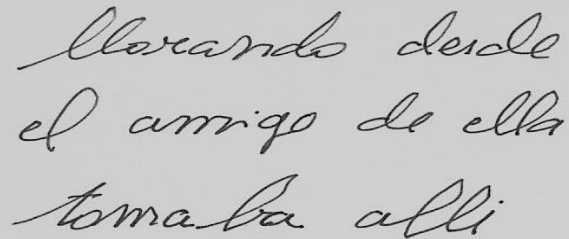 llorando desde
el amigo de ella
tomaba alli